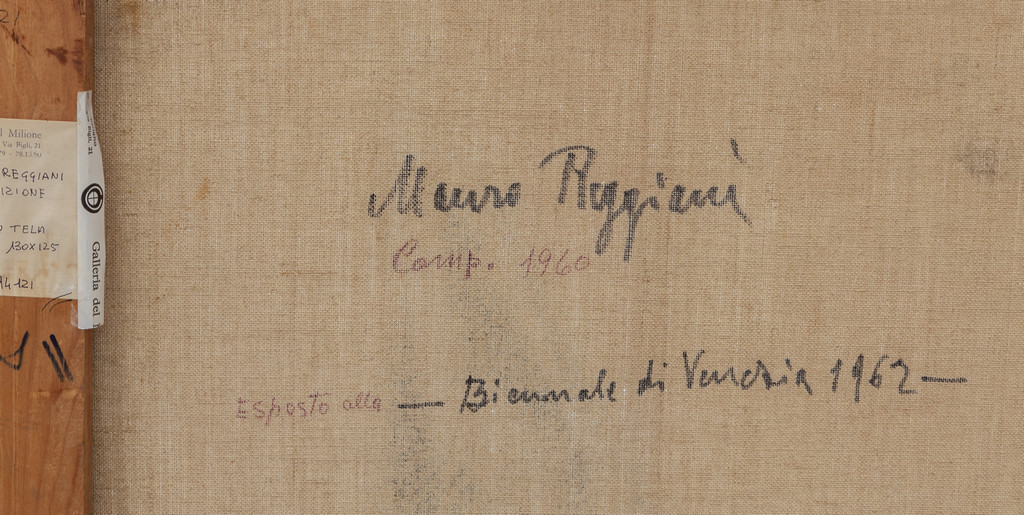 21
l Milione
Via Bigli, 21
REGGIANI
IZIONE
TELA
130X125
Bigli, 21
Galleria del
Mauro Reggiani
Comp. 1960
Esposto alla — Biennale di Venezia 1962 —